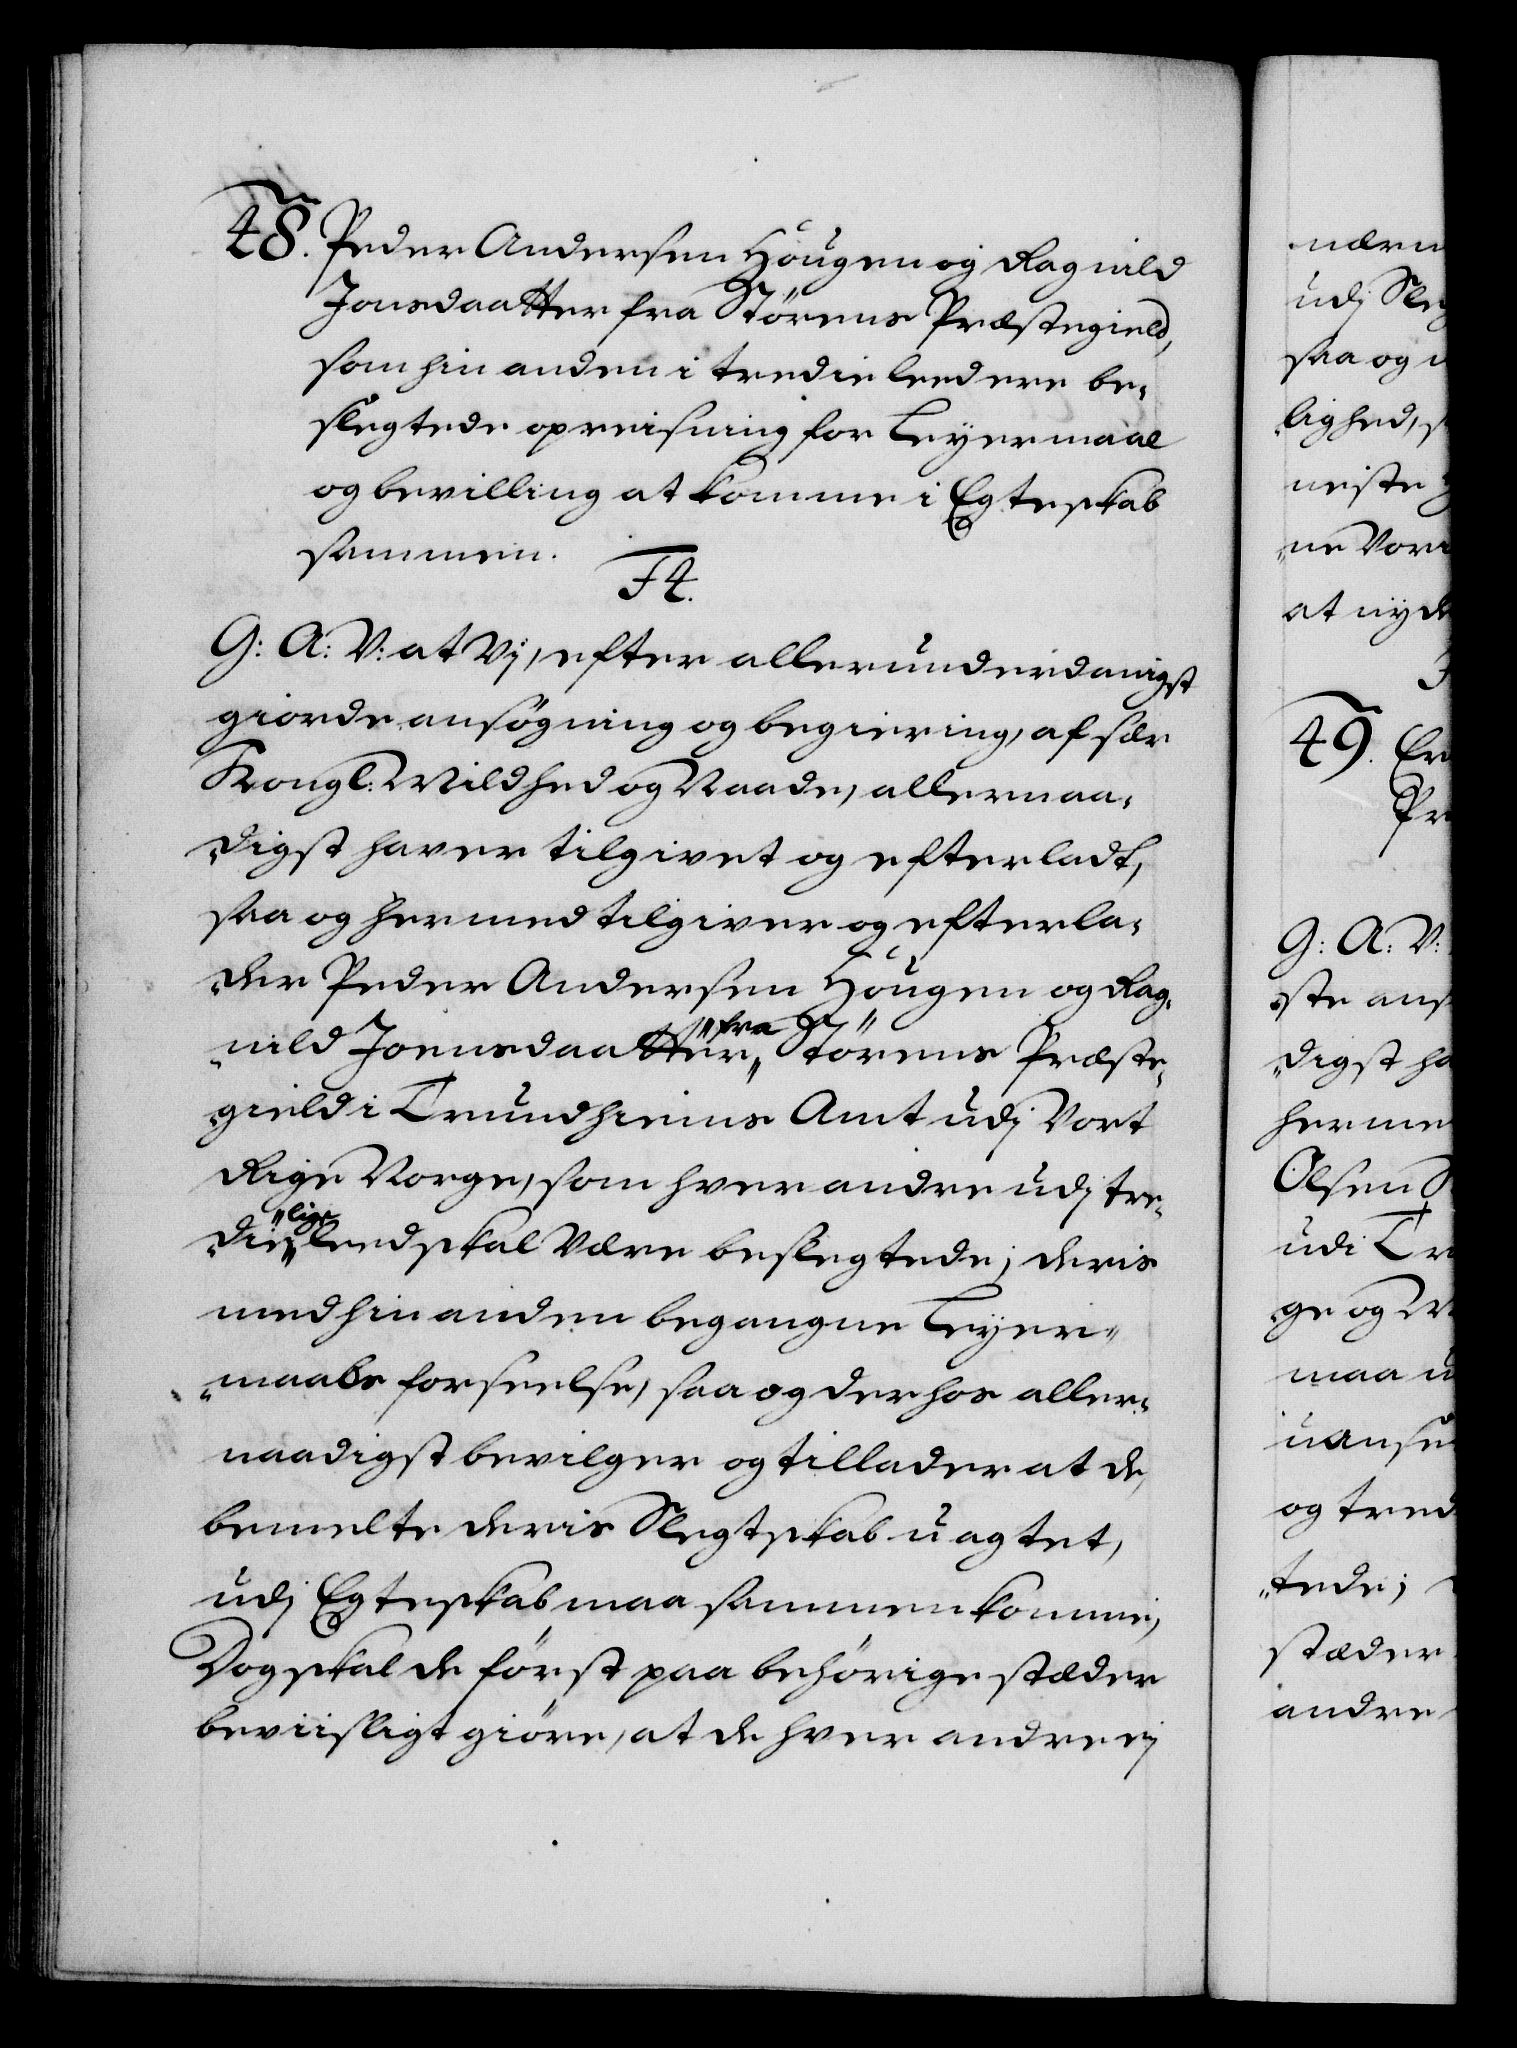 48. Peder Andersen Hougen og Ragnild
Jonsdaatter fra Störens Præstegield,
som hin anden i tredie leed ere be-
slegtede opreisning for Leyermaal
og bevilling at komme i Egteskab
sammen.
F4.
G: A: V: at Vj, efter allerunderdanigst
giorde ansøgning og begiering, af sær
Kongl: Mildhed og Naade, allernaa-
digst haver tilgivet og efterladt,
saa og hermed tilgiver og efterla-
der Peder Andersen Hougen og Rag-
nild Joensdaatter fra Störens Præste-
gield i Trundhiems Amt udj Vort
Rige Norge, som hver andre udj tre-
die lige leed skal være beslegtede; deris
med hin anden begangne Leyer-
maals forseelse, saa og derhos aller-
naadigst bevilger og tillader at de,
bemelte deris Slegtskab uagtet,
udj Egteskab maa sammenkomme,
Dog skal de först paa behörige stæder
beviisligt giöre, at de hver andre ej
nærm
udj Sleg
saa og
lighed,
neiste
ne Vor
at nyde
49. Er
Pr
G: A: V:
ste ans
digst ha
herme
Olsen
udi Tr
ge og
maa u
uanse
og tred
tede;
stæder
andre